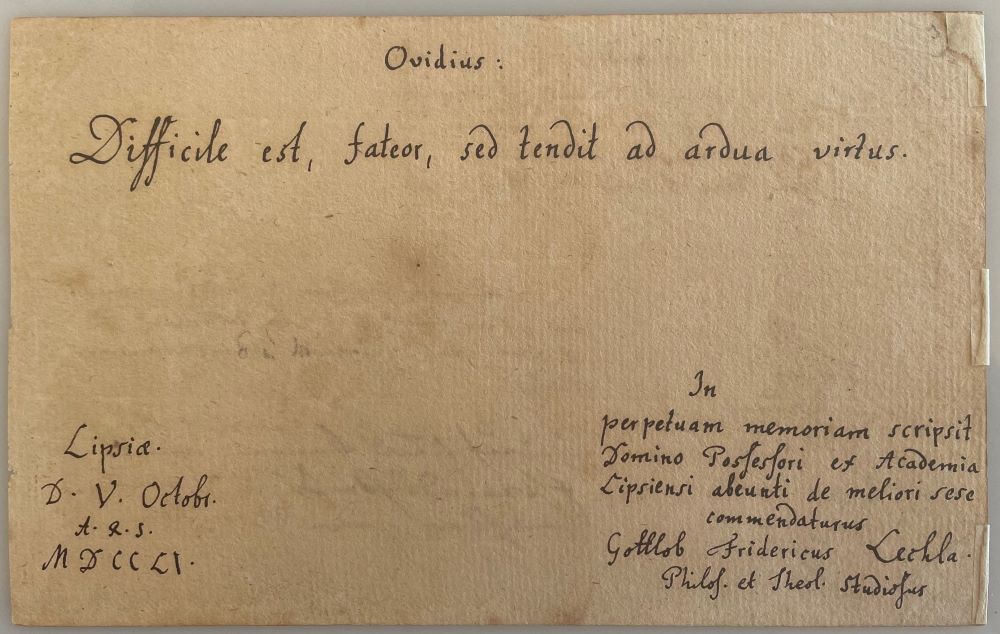 Ovidius:
Difficile est, fateor, sed tendit ad ardua virtus.
Lipsiæ.
D. V. Octobr.
A. R. S.
MDCCLI.
In
perpetuam memoriam scripsit
Domino Possessori ex Academia
Lipsiensi abeunti de meliori sese
commendaturus
Gottlob Fridericus Lechla.
Philos. et Theol. Studiosus